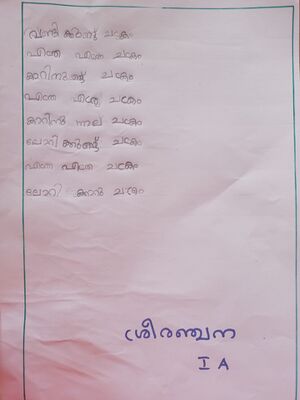 വണ്ടിക്കുണ്ടു ചക്രം
എത്ര എത്ര ചക്രം
കാറിനുണ്ട് ചക്രം
എത്ര എത്ര ചക്രം
കാറിനു നാല് ചക്രം
ലോറിക്കുണ്ട് ചക്രം
എത്ര എത്ര ചക്രം
ലോറി ചക്രം
ശ്രീരഞ്ചന
I A